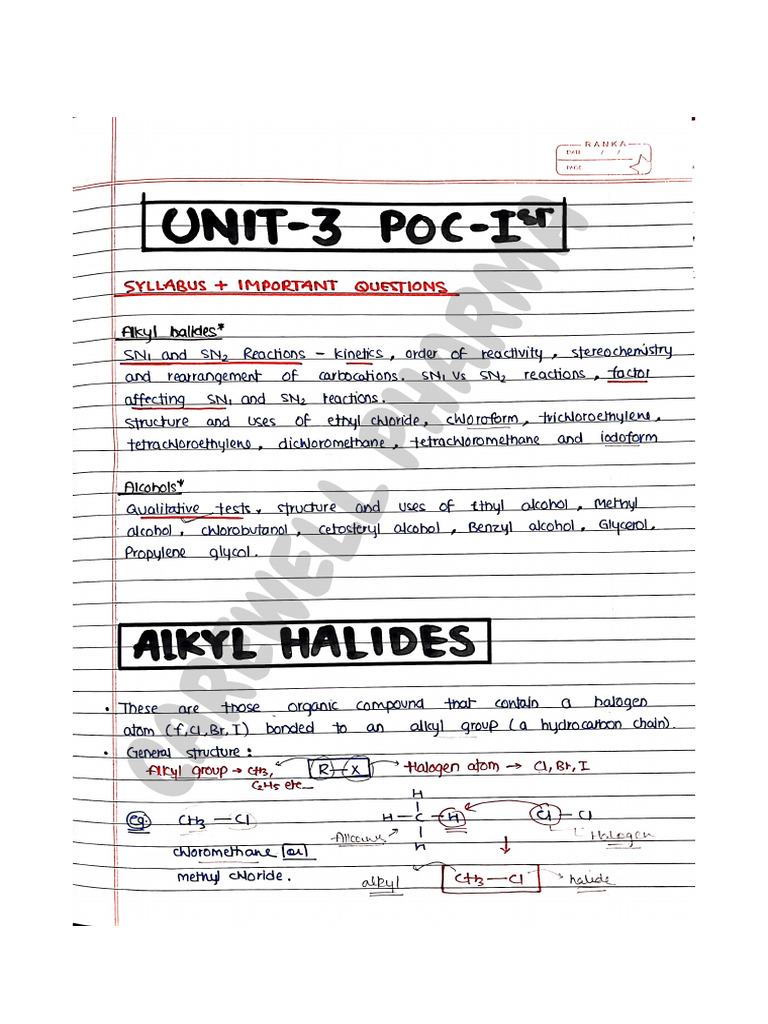 RANKA
DATE / /
PAGE
UNIT-3 POC-Ist
SYLLABUS + IMPORTANT QUESTIONS
Alkyl halides*
SN1 and SN2 Reactions - kinetics, order of reactivity, stereochemistry
and rearrangement of carbocations. SN1 vs SN2 reactions, factor
affecting SN1 and SN2 reactions.
structure and uses of ethyl chloride, chloroform, trichloroethylene,
tetrachloroethylene, dichloromethane, tetrachloromethane and iodoform
Alcohols*
Qualitative tests, structure and uses of Ethyl alcohol, Methyl
alcohol, chlorobutanol, cetosteryl alcohol, Benzyl alcohol, Glycerol,
Propylene glycol.
CAREWELL PHARMA
AlKYL HALIDES
• These are those organic compound that contain a halogen
atom (f, Cl, Br, I) bonded to an alkyl group (a hydrocarbon chain).
• General structure:
Alkyl group → CH3, R—X Halogen atom → Cl, Br, I
C2H5 etc
H
eg. CH3—Cl H—C—H Cl—Cl
H
Halogen
chloromethane or
methyl chloride.
alkyl CH3—Cl halide